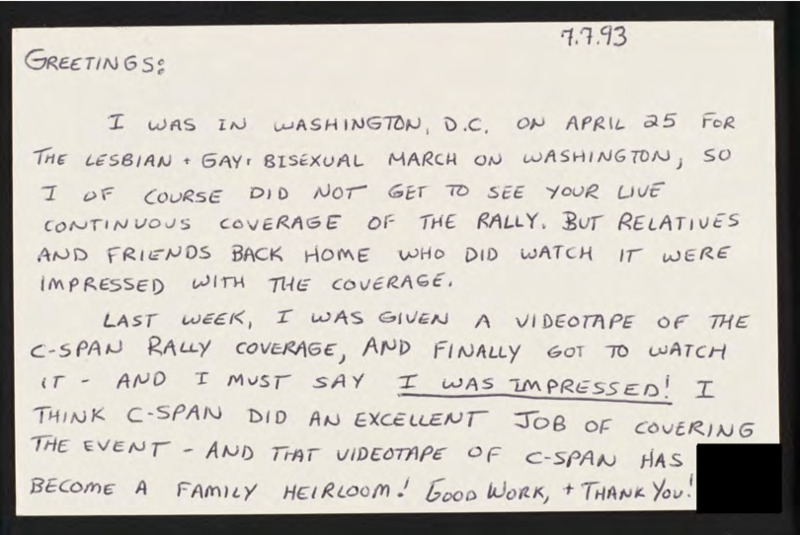 7.7.93
GREETINGS:
I WAS IN WASHINGTON, D.C. ON APRIL 25 FOR
THE LESBIAN + GAY + BISEXUAL MARCH ON WASHINGTON, SO
I OF COURSE DID NOT GET TO SEE YOUR LIVE
CONTINUOUS COVERAGE OF THE RALLY. BUT RELATIVES
AND FRIENDS BACK HOME WHO DID WATCH IT WERE
IMPRESSED WITH THE COVERAGE.
LAST WEEK, I WAS GIVEN A VIDEOTAPE OF THE
C-SPAN RALLY COVERAGE, AND FINALLY GOT TO WATCH
IT - AND I MUST SAY I WAS IMPRESSED! I
THINK C-SPAN DID AN EXCELLENT JOB OF COVERING
THE EVENT - AND THAT VIDEOTAPE OF C-SPAN HAS
BECOME A FAMILY HEIRLOOM! GOOD WORK, + THANK YOU!